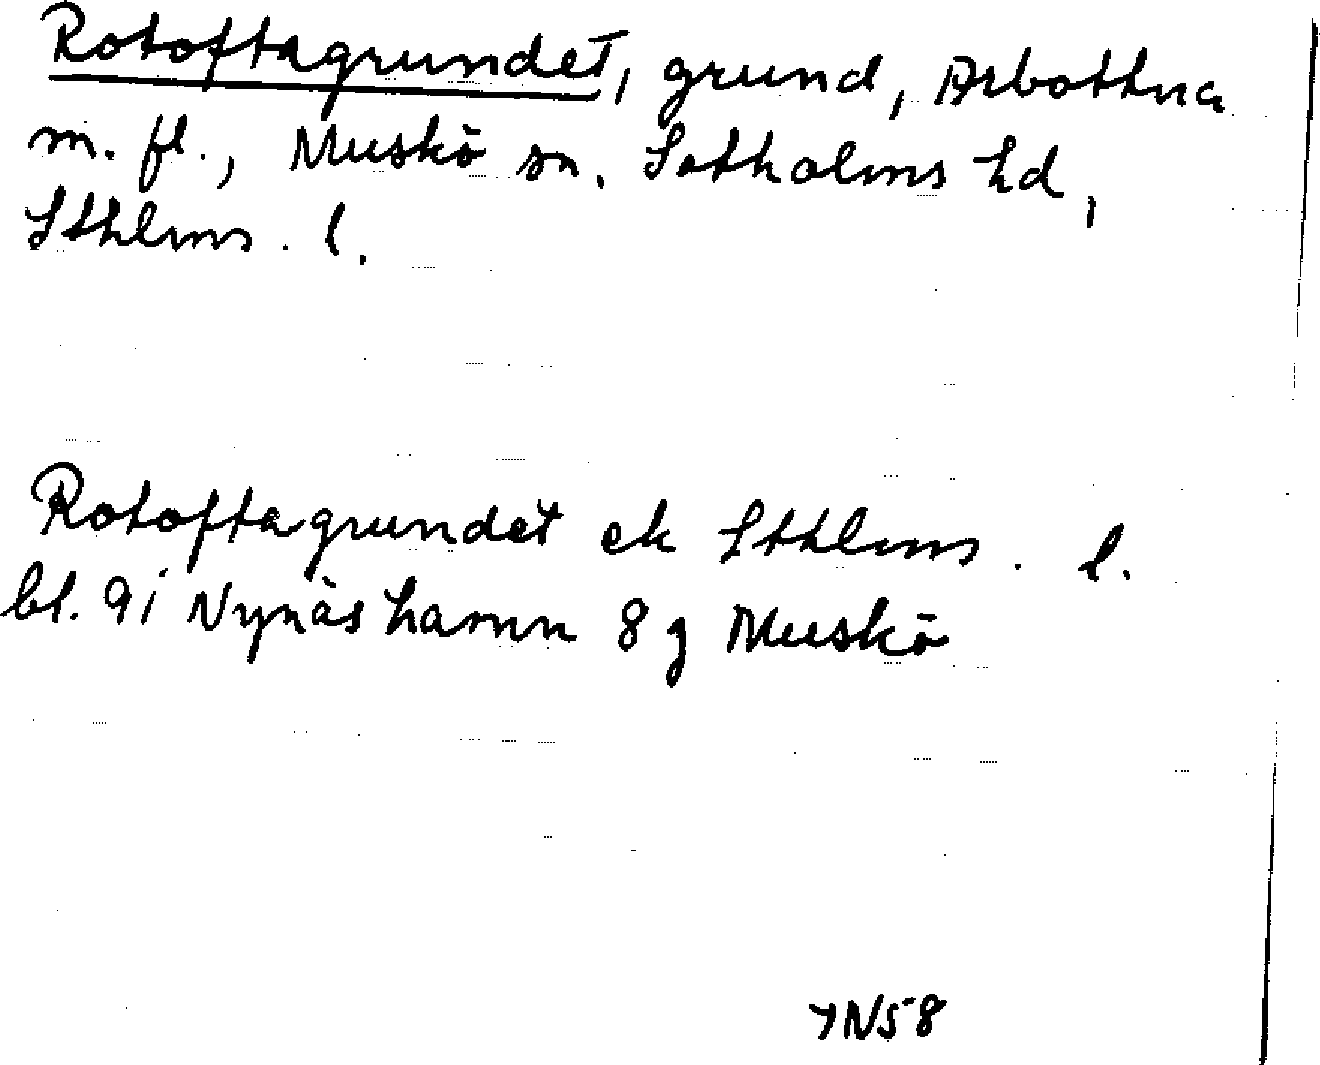 Rotoftagrundet, grund, Arbottna
m. fl., Muskö sn. Sotholms hd,
Sthlms. l.
Rotoftagrundet ek Sthlms. l.
bl. 9i Nynäshamn 8g Muskö
YN58